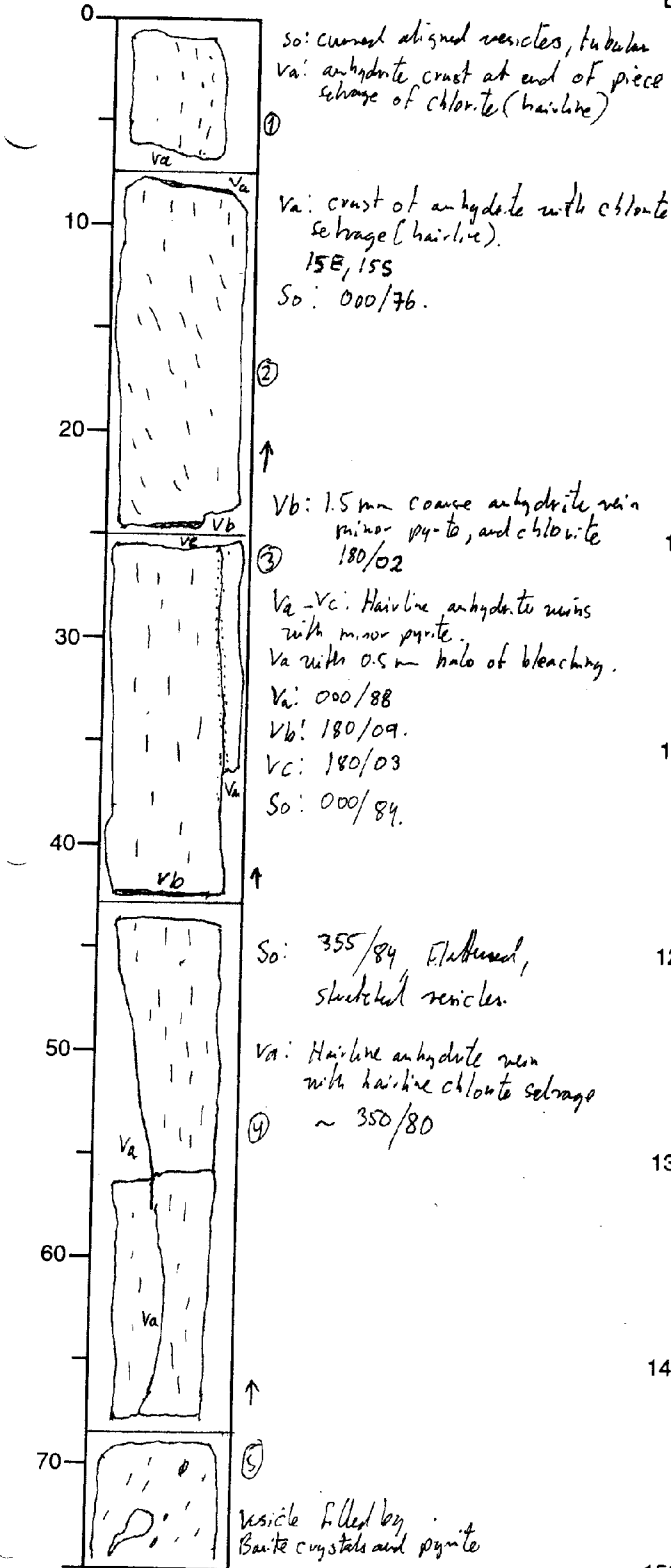 0
So: curved aligned vesicles, tubular
Va: anhydrite crust at end of piece
selvage of chlorite (hairline)
①
Va
Va
Va: crust of anhydrite with chlorite
selvage (hairline).
10
15E, 15S
So: 000/76.
②
20
↑
Vb: 1.5 mm coarse anhydrite vein
minor pyrite, and chlorite
180/02
Vb
Vc
③
1
Va-Vc: Hairline anhydrite veins
with minor pyrite.
30
Va with 0.5 m halo of bleaching.
Va: 000/88
Vb: 180/09.
1
Vc: 180/03
Va
So: 000/84.
40
Vb
↑
So: 355/84, Flattened,
stretched vesicles.
12
50
Va: Hairline anhydrite vein
with hairline chlorite selvage
~ 350/80
④
Va
13
60
Va
14
↑
70
⑤
Vesicle filled by
Barite crystals and pyrite